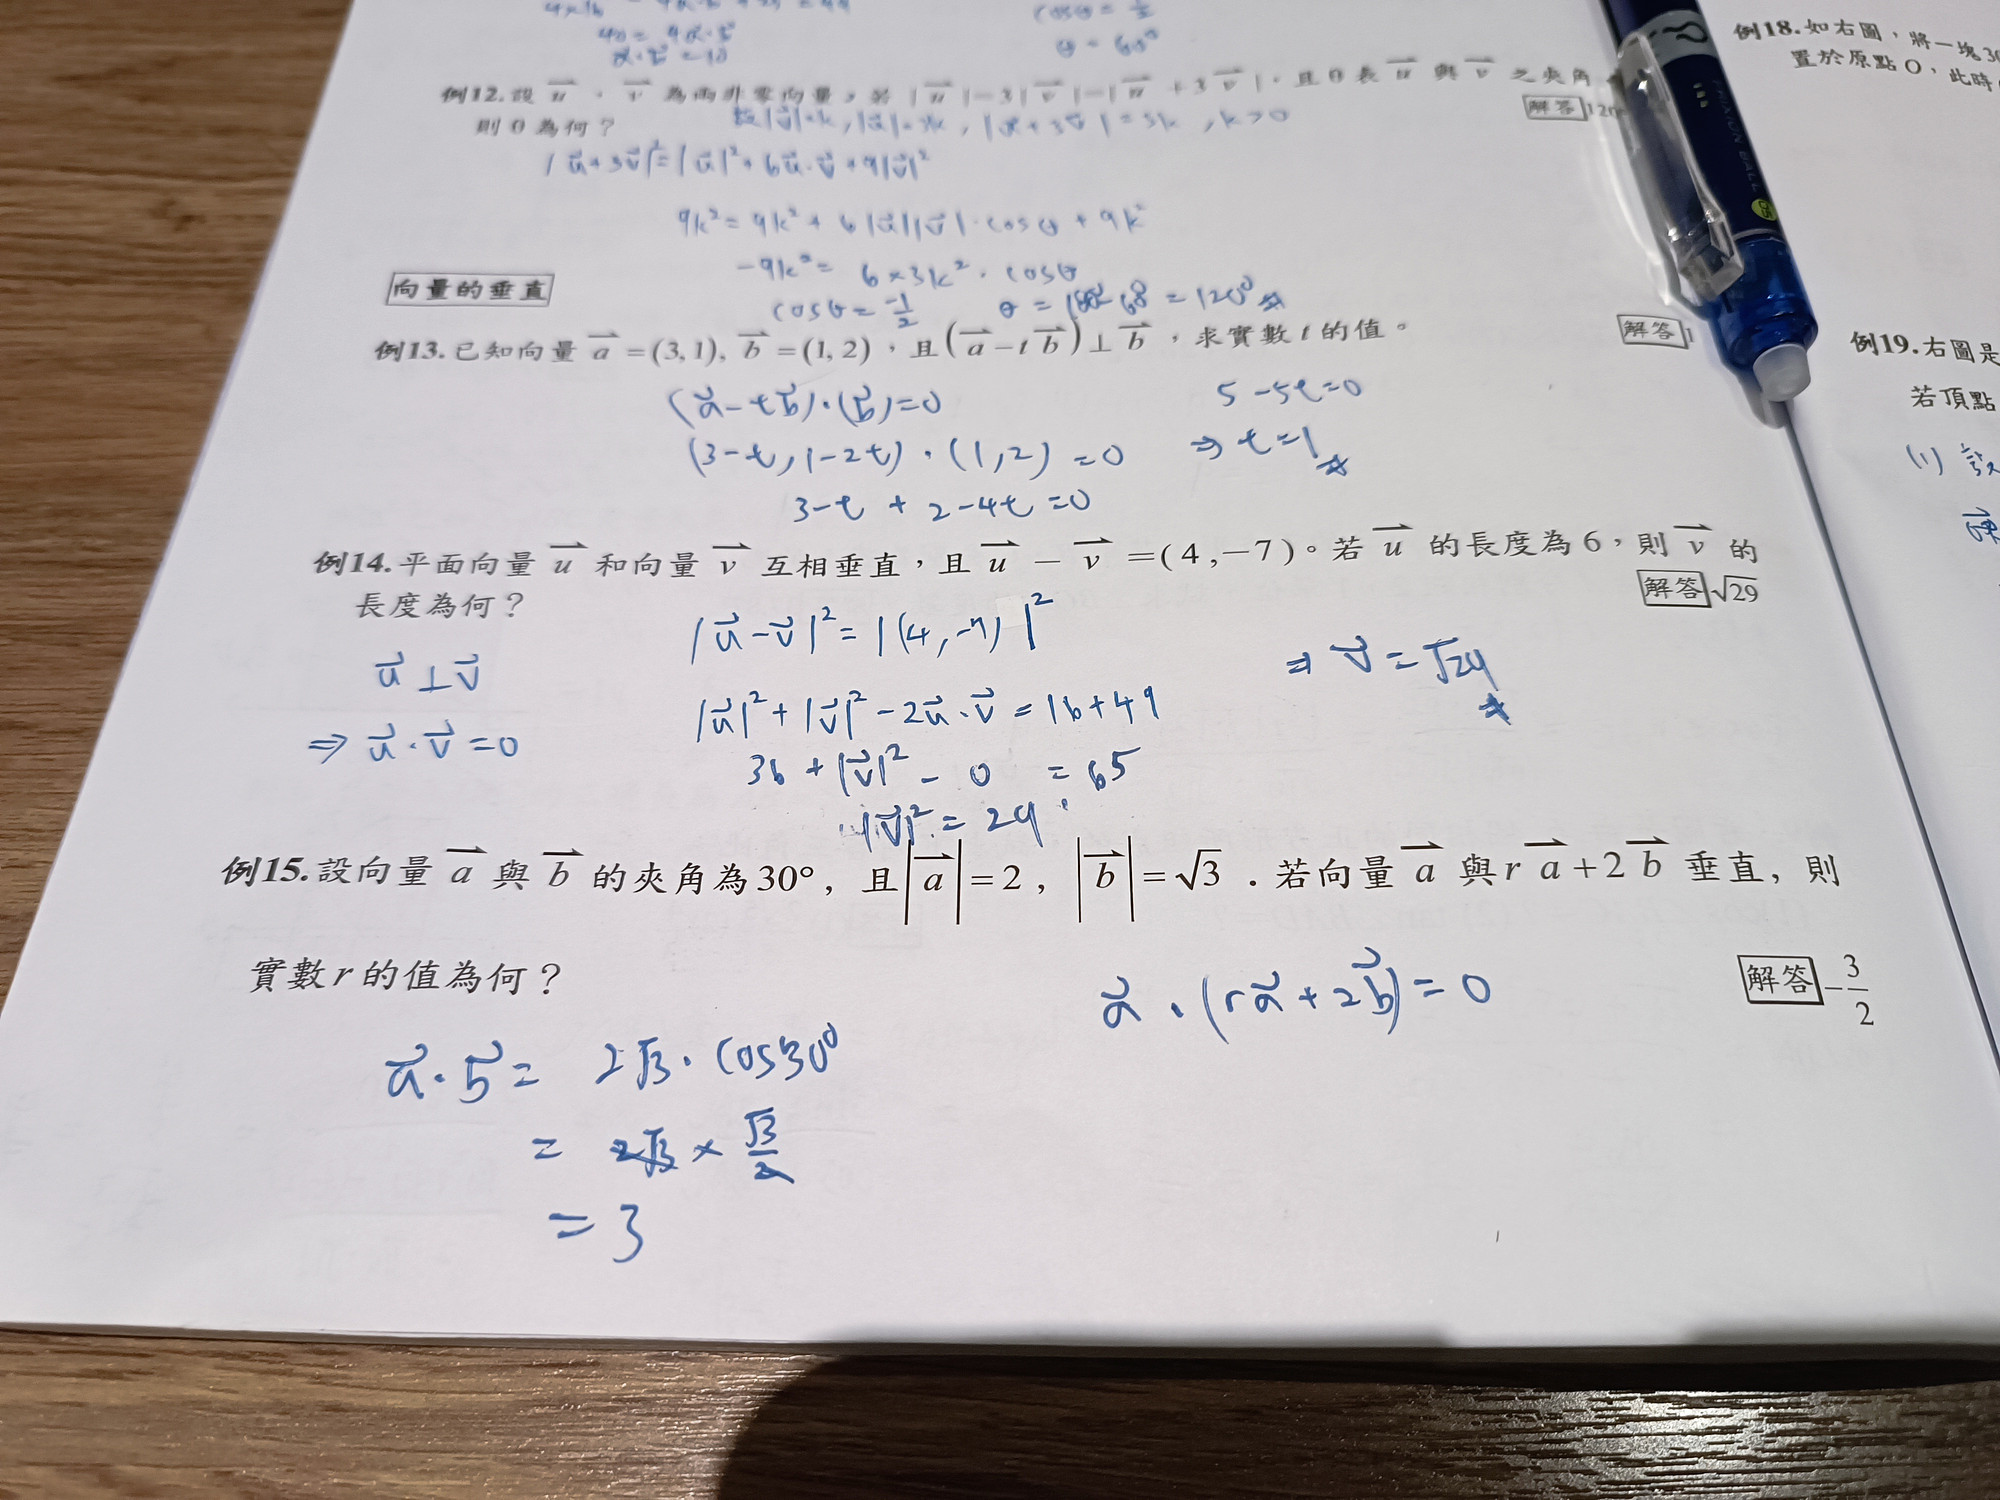 cosθ = 1/2
θ = 60°
例12.設 u⃗ , v⃗ 為兩非零向量,若 |u⃗|=3|v⃗|=|u⃗+3v⃗|,且 θ 表 u⃗ 與 v⃗ 之夾角
則 θ 為何? 解答 120
設|v⃗|=k, |u⃗|=3k, |u⃗+3v⃗|=3k, k>0
|u⃗+3v⃗|²=|u⃗|²+6u⃗·v⃗+9|v⃗|²
9k²=9k²+6|u⃗||v⃗|·cosθ+9k²
-9k²= 6×3k²·cosθ
cosθ = -1/2 θ = 180°-60 = 120°
向量的垂直
例13.已知向量 a⃗=(3,1), b⃗=(1,2),且(a⃗-t b⃗)⊥b⃗,求實數 t 的值。 解答 1
(a⃗-tb⃗)·(b⃗)=0 5-5t=0
(3-t, 1-2t)·(1,2)=0 ⇒ t=1
3-t + 2-4t=0
例14.平面向量 u⃗ 和向量 v⃗ 互相垂直,且 u⃗ - v⃗ =(4,-7)。若 u⃗ 的長度為6,則 v⃗ 的
長度為何? 解答 √29
|u⃗-v⃗|²=|(4,-7)|²
u⃗⊥v⃗ ⇒ v⃗=√29
|u⃗|²+|v⃗|²-2u⃗·v⃗=16+49
⇒ u⃗·v⃗=0
36+|v⃗|²-0 =65
|v⃗|²=29
例15.設向量 a⃗ 與 b⃗ 的夾角為30°, 且|a⃗|=2, |b⃗|=√3 .若向量 a⃗ 與 r a⃗+2b⃗ 垂直, 則
實數 r 的值為何? 解答 -3/2
a⃗·(ra⃗+2b⃗)=0
a⃗·b⃗= 2√3·cos30°
= 2√3×√3/2
= 3
例18.如右圖,將一塊30
置於原點O,此時
例19.右圖是
若頂點
(1) 設
FRIXION BALL